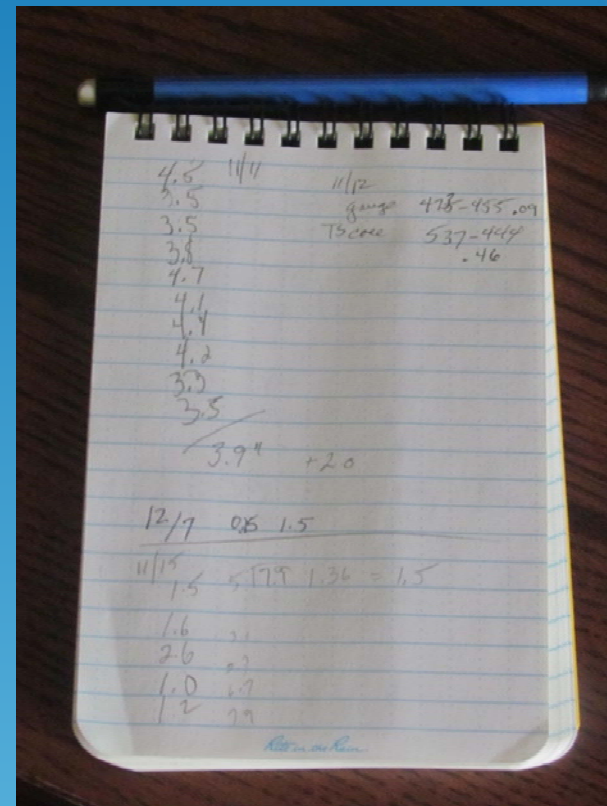 4.5 11/11
3.5
3.5
3.8
4.7
4.1
4.4
4.2
3.3
3.5
3.9" +2.0
11/12
gauge 455 .09
TS core 537-444
.46
12/7 1.5
11/15
1.5 5 7.9 1.36 = 1.5
1.6
2.6
1.0
1.2 7.9
Rite in the Rain